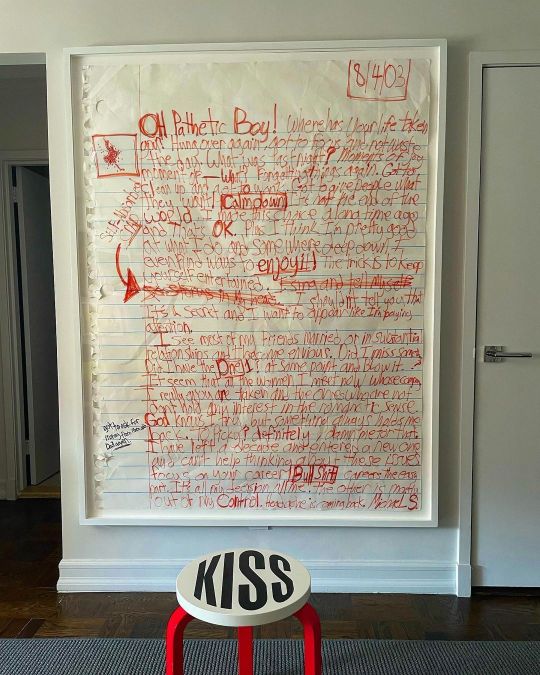 8/4/03
OH Pathetic Boy! Where has your life taken
you? Hung over again. Got to focus and not waste
the day. What was last night? Moments of joy
moment of — what? Forgetting things again. Got to
clean up and get to work. Got to give people what
they want! Calm down. It's not the end of the
world. I made this choice a long time ago
and that's OK. Plus I think I'm pretty good
at what I do and somewhere deep down, I
even find ways to enjoy it! The trick is to keep
yourself entertained. I sing and tell myself
stories in my head. I shouldn't tell you that
It's a secret and I want to appear like I'm paying
attention.
I see most of my friends married or in substantial
relationships and I become envious. Did I miss something?
Did I have the One at some point and blow it..?
It seem that all the women I meet now whose company
I really enjoy are taken and the ones who are not
don't hold any interest in the romantic sense.
God knows I try but something always holds me
back. Picky? definitely! damn me for that.
I have left a decade and entered a new one
and can't help thinking about these issues
focus on your career! Bull Shit careers the easy
part. It's all my decision. Mine. The other is math
out of my Control. Headache is coming back. Michael S.
KISS